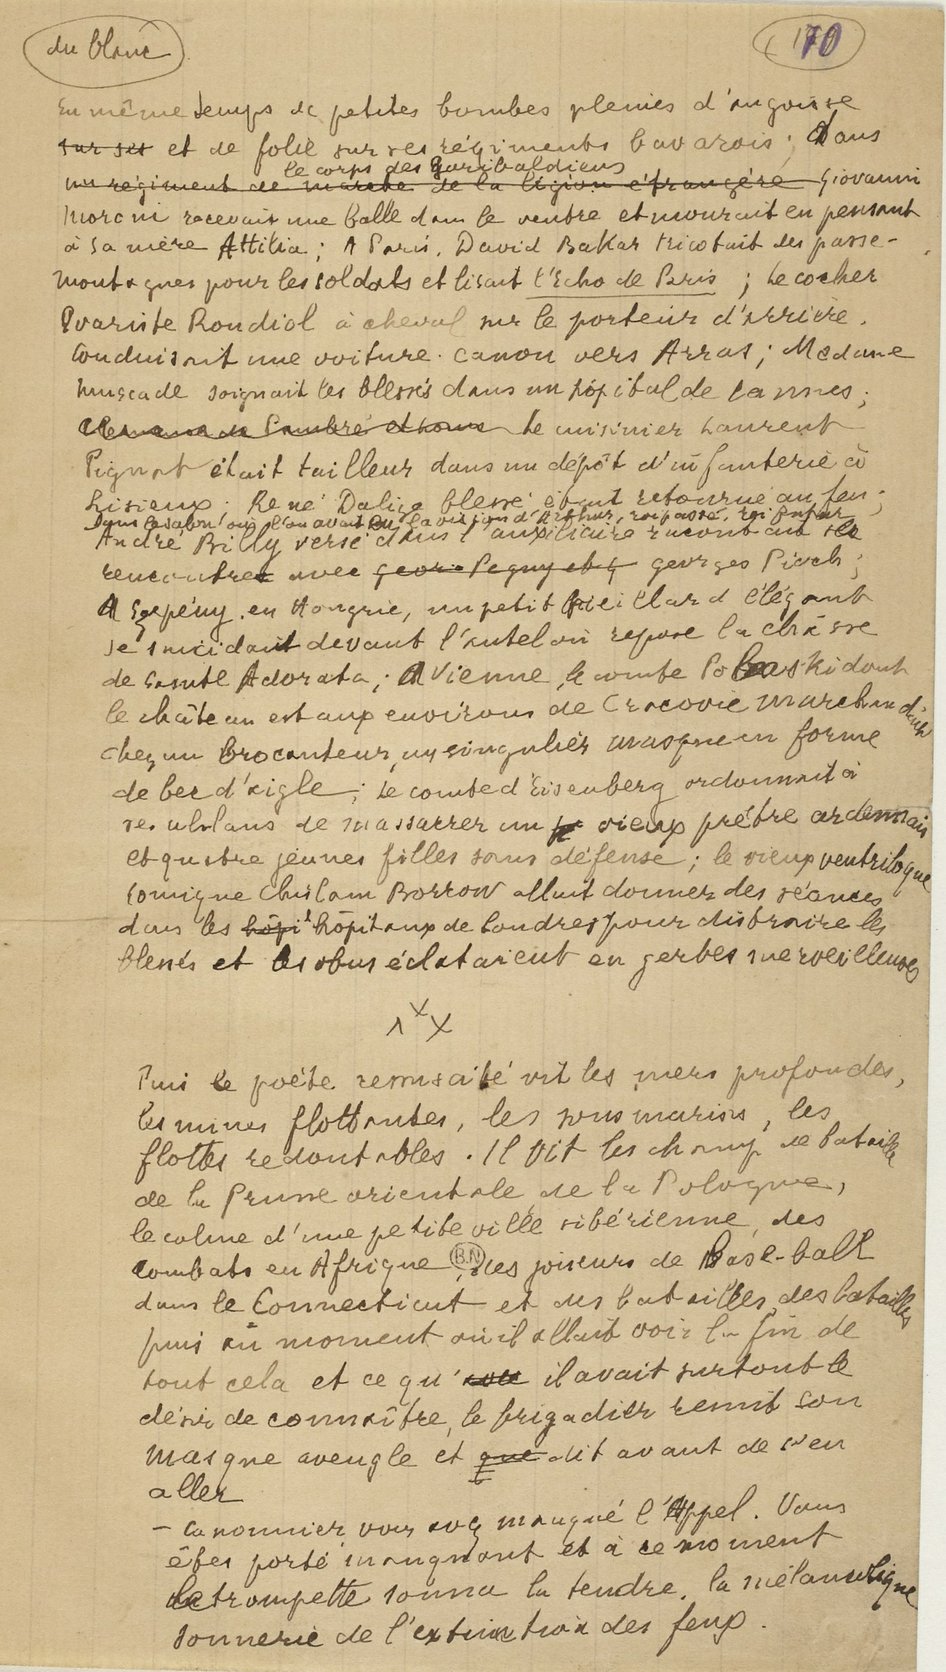 du blanc
70
En même temps de petites bombes pleines d'angoisse
sur ses et de folie sur ses régiments bavarois ; dans
le corps des Garibaldiens
un régiment de marche de la légion étrangère Giovanni
Moroni recevait une balle dans le ventre et mourait en pensant
à sa mère Attilia ; A Paris, David Bakar tricotait des passe-
montagnes pour les soldats et lisait l'Echo de Paris ; Le cocher
Evariste Rondiol à cheval sur le porteur d'arrière,
conduisait une voiture-canon vers Arras ; Madame
Muscade soignait les blessés dans un hôpital de Cannes ;
Le cuisinier Laurent
Pignat était tailleur dans un dépôt d'infanterie à
Lisieux ; René Dalize blessé était retourné au feu ;
Dans le salon où l'on avait eu la vision d'Arthur, roi passé, roi futur
André Billy versé dans l'auxiliaire racontait sa
rencontre avec Georges Pioch ;
A Szepény, en Hongrie, un petit vieillard élégant
se suicidait devant l'autel où repose la châsse
de sainte Adorata ; A Vienne, le comte Polaski dont
le château est aux environs de Cracovie marchandait
chez un brocanteur un singulier masque en forme
de bec d'aigle ; Le comte d'Eisenberg ordonnait à
ses uhlans de massacrer un vieux prêtre ardennais
et quatre jeunes filles sans défense ; le vieux ventriloque
comique Chislam Borrow allait donner des séances
dans les hôpi hôpitaux de Londres pour distraire les
blessés et les obus éclataient en gerbes merveilleuses
x x x
Puis le poète ressuscité vit les mers profondes,
les mines flottantes, les sous marins, les
flottes redoutables. Il vit les champs de bataille
de la Prusse orientale de la Pologne,
le calme d'une petite ville sibérienne, des
combats en Afrique, des joueurs de Base-ball
B.N
dans le Connecticut et des batailles, des batailles
puis au moment où il allait voir la fin de
tout cela et ce qu' il avait surtout le
désir de connaître, le brigadier remit son
masque aveugle et que dit avant de s'en
aller
– Canonnier, vous avez manqué l'Appel. Vous
êtes porté manquant et à ce moment
la trompette sonna la tendre, la mélancolique
sonnerie de l'extinction des feux.